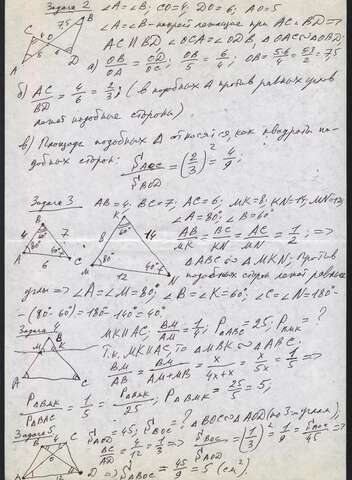 Задача 2 ∠A=∠B; CO=4; DO=6; AO=5
∠A=∠B - накрест лежащие при AC и BD ⇒
AC ∥ BD ∠OCA=∠ODB. Δ OAC∾ΔOBD;
а) OB/OA = OD/OC; OB/5 = 6/4; OB = 5·6/4 = 5·3/2 = 7,5
б) AC/BD = 4/6 = 2/3; (в подобных Δ против равных углов
лежат подобные стороны)
в) Площади подобных Δ относятся, как квадраты по-
добных сторон: S AOC/S BOD = (2/3)² = 4/9;
Задача 3 AB=4; BC=7; AC=6; MK=8; KN=14; MN=12;
∠A=80° ∠B=60°
AB/MK = BC/KN = AC/MN = 1/2; ⇒
ΔABC ∾ ΔMKN. Против
подобных сторон лежат равные
углы ⇒ ∠A=∠M=80°; ∠B=∠K=60°; ∠C=∠N=180°-
-(80°+60°)=180°-140°=40°
Задача 4 MK∥AC; BM/AM = 1/4; P ΔABC = 25; P BMK = ?
Т.к. MK∥AC, то ΔMBK ∾ ΔABC;
BM/AB = BM/(AM+MB) = x/(4x+x) = x/5x = 1/5 ⇒
P ΔBMK/P ΔABC = 1/5 = P ΔBMK/25; P ΔBMK = 25/5 = 5;
Задача 5 S AOD = 45; S BOC = ? ΔBOC∾ΔAOD (по 3-м углам)
BC/AD = 4/12 = 1/3 ⇒ S BOC/S AOD = (1/3)² = 1/9 = S BOC/45 ⇒
⇒ S ΔBOC = 45/9 = 5 (см²)